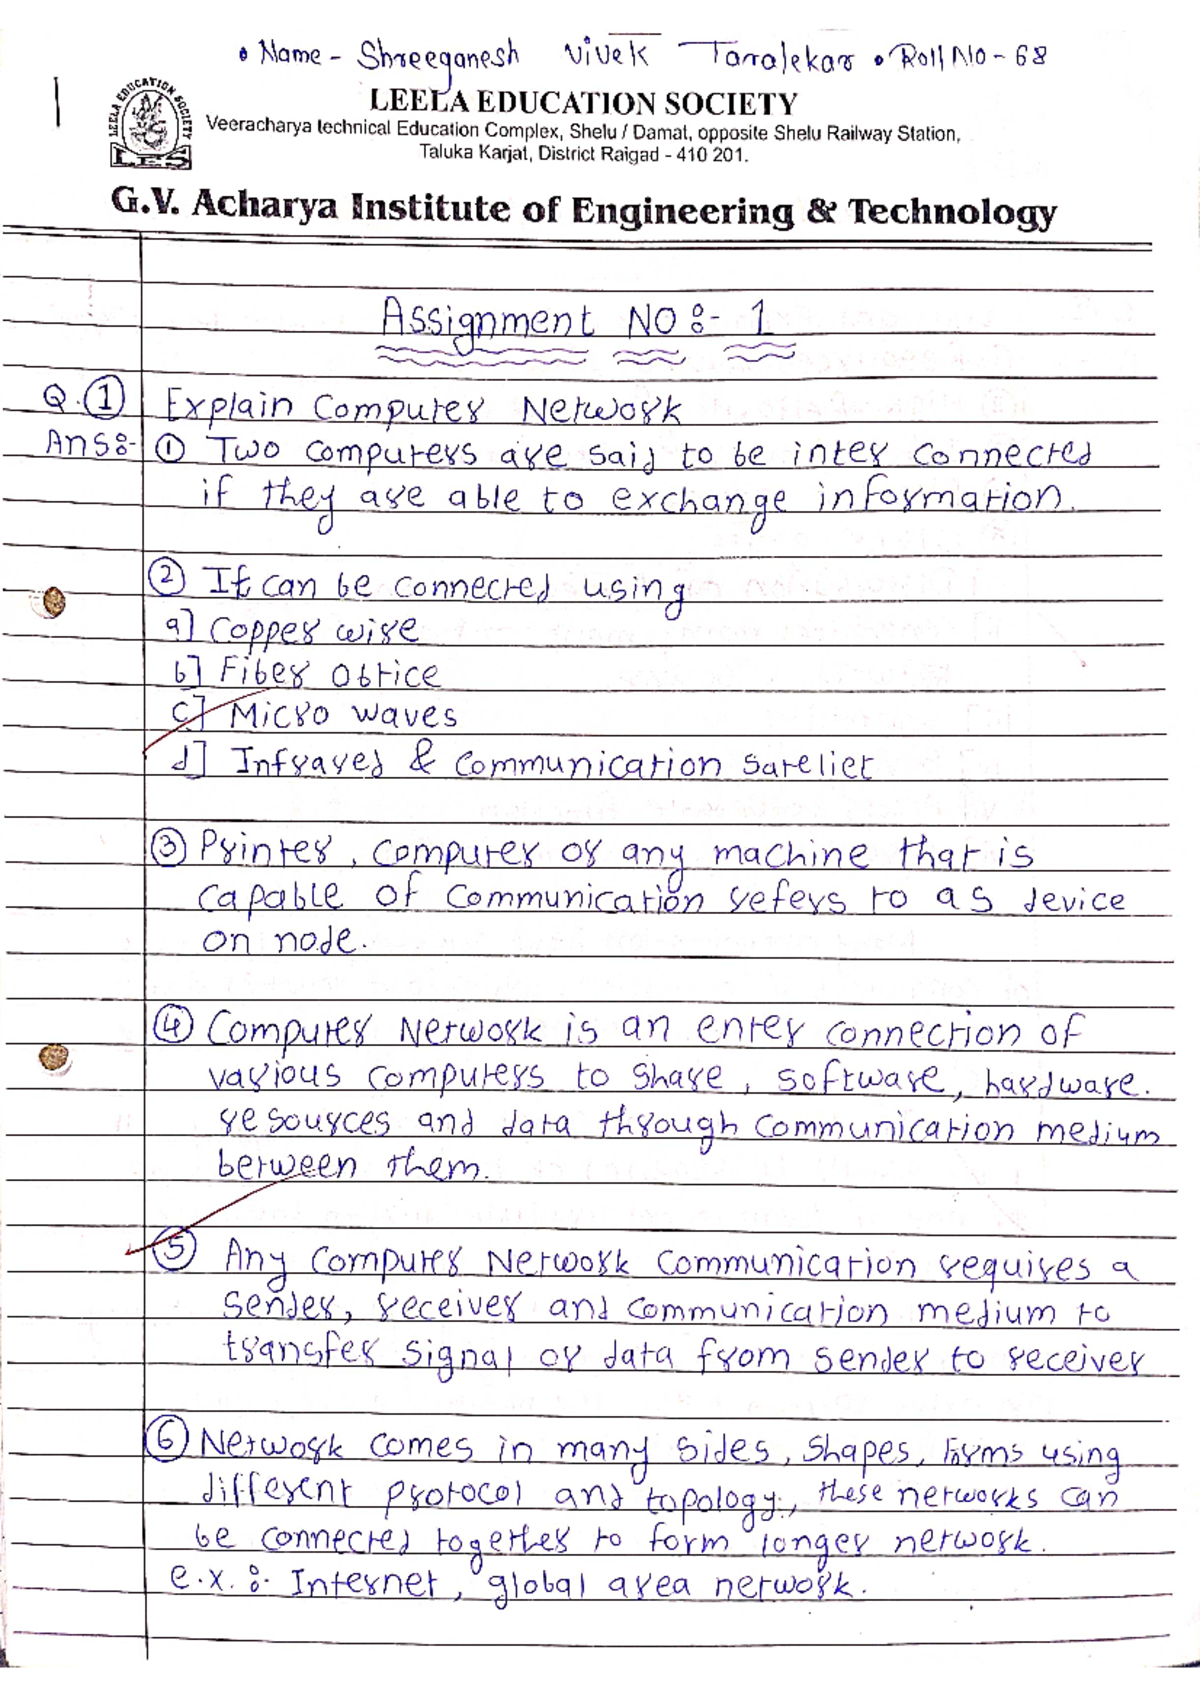 • Name - Shreeganesh Vivek Taralekar • Roll No - 68
1
LEELA EDUCATION SOCIETY
LEELA EDUCATION SOCIETY
LES
Veeracharya technical Education Complex, Shelu / Damat, opposite Shelu Railway Station,
Taluka Karjat, District Raigad - 410 201.
G.V. Acharya Institute of Engineering & Technology
Assignment NO :- 1
Q. ① Explain Computer Network
Ans :- ① Two computers are said to be inter connected
if they are able to exchange information.
② It can be connected using
a] Copper wire
b] Fiber Obtice
c] Micro waves
d] Infrared & communication Sateliet
③ Printer, computer or any machine that is
capable of communication refers to as device
on node.
④ Computer Network is an enter connection of
various computers to share, software, hardware.
resources and data through communication medium
between them.
⑤ Any computer Network communication requires a
sender, receiver and communication medium to
transfer signal or data from sender to receiver
⑥ Network comes in many sides, shapes, forms using
different protocol and topology, these networks can
be connected together to form longer network.
e.x. :- Internet, global area network.